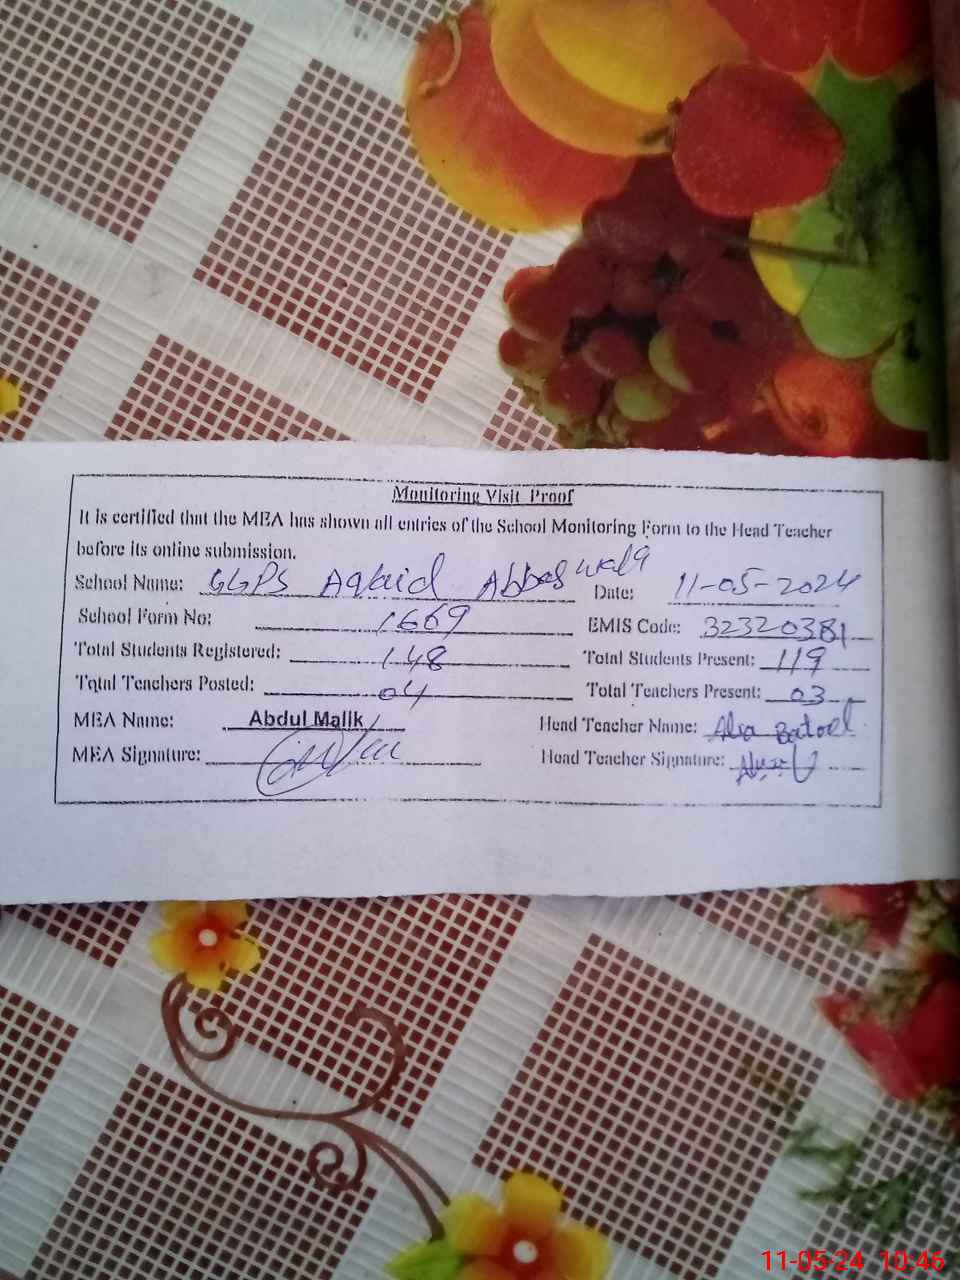 Monitoring Visit Proof
It is certified that the MEA has shown all entries of the School Monitoring Form to the Head Teacher
before its online submission.
School Name: GGPS Aqaid Abbas wala Date: 11-05-2024
School Form No: 1669 EMIS Code: 32320381
Total Students Registered: 148 Total Students Present: 119
Total Teachers Posted: 04 Total Teachers Present: 03
MEA Name: Abdul Malik Head Teacher Name: Alia Batool
MEA Signature: Head Teacher Signature:
11-05-24 10:46